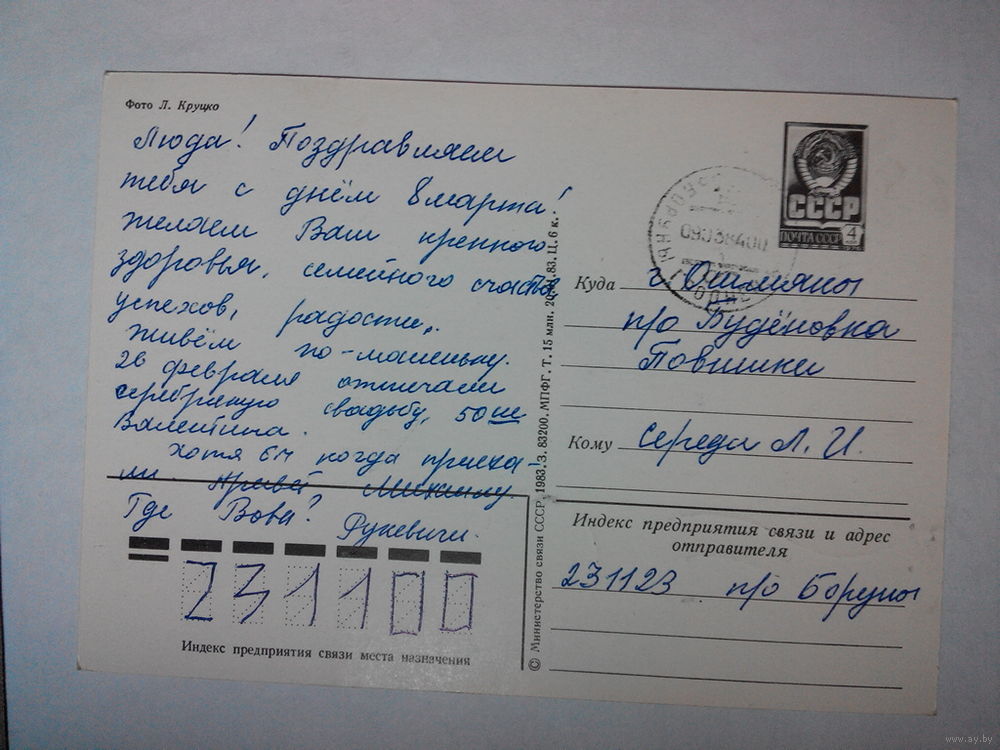 Фото Л. Круцко
Люда! Поздравляем
тебя с днём 8 марта!
Желаем Вам крепкого
здоровья, семейного счастья
успехов, радости.
Живём по-маленьку.
26 февраля отмечали
серебряную свадьбу, 50ие
Валентина.
Хотя бы когда приеха-
ли. Привет Михаилу.
Где Вова? Рукевичи.
231100
Индекс предприятия связи места назначения
© Министерство связи СССР, 1983. З. 83200. МПФГ. Т. 15 млн. 83. Ц. 6 к.
СССР
ПОЧТА СССР 4
Куда г. Ошмяны
п/о Будёновка
Повшики
Кому Середа Л. И.
Индекс предприятия связи и адрес
отправителя
231123 п/о Боруны
www.ay.by